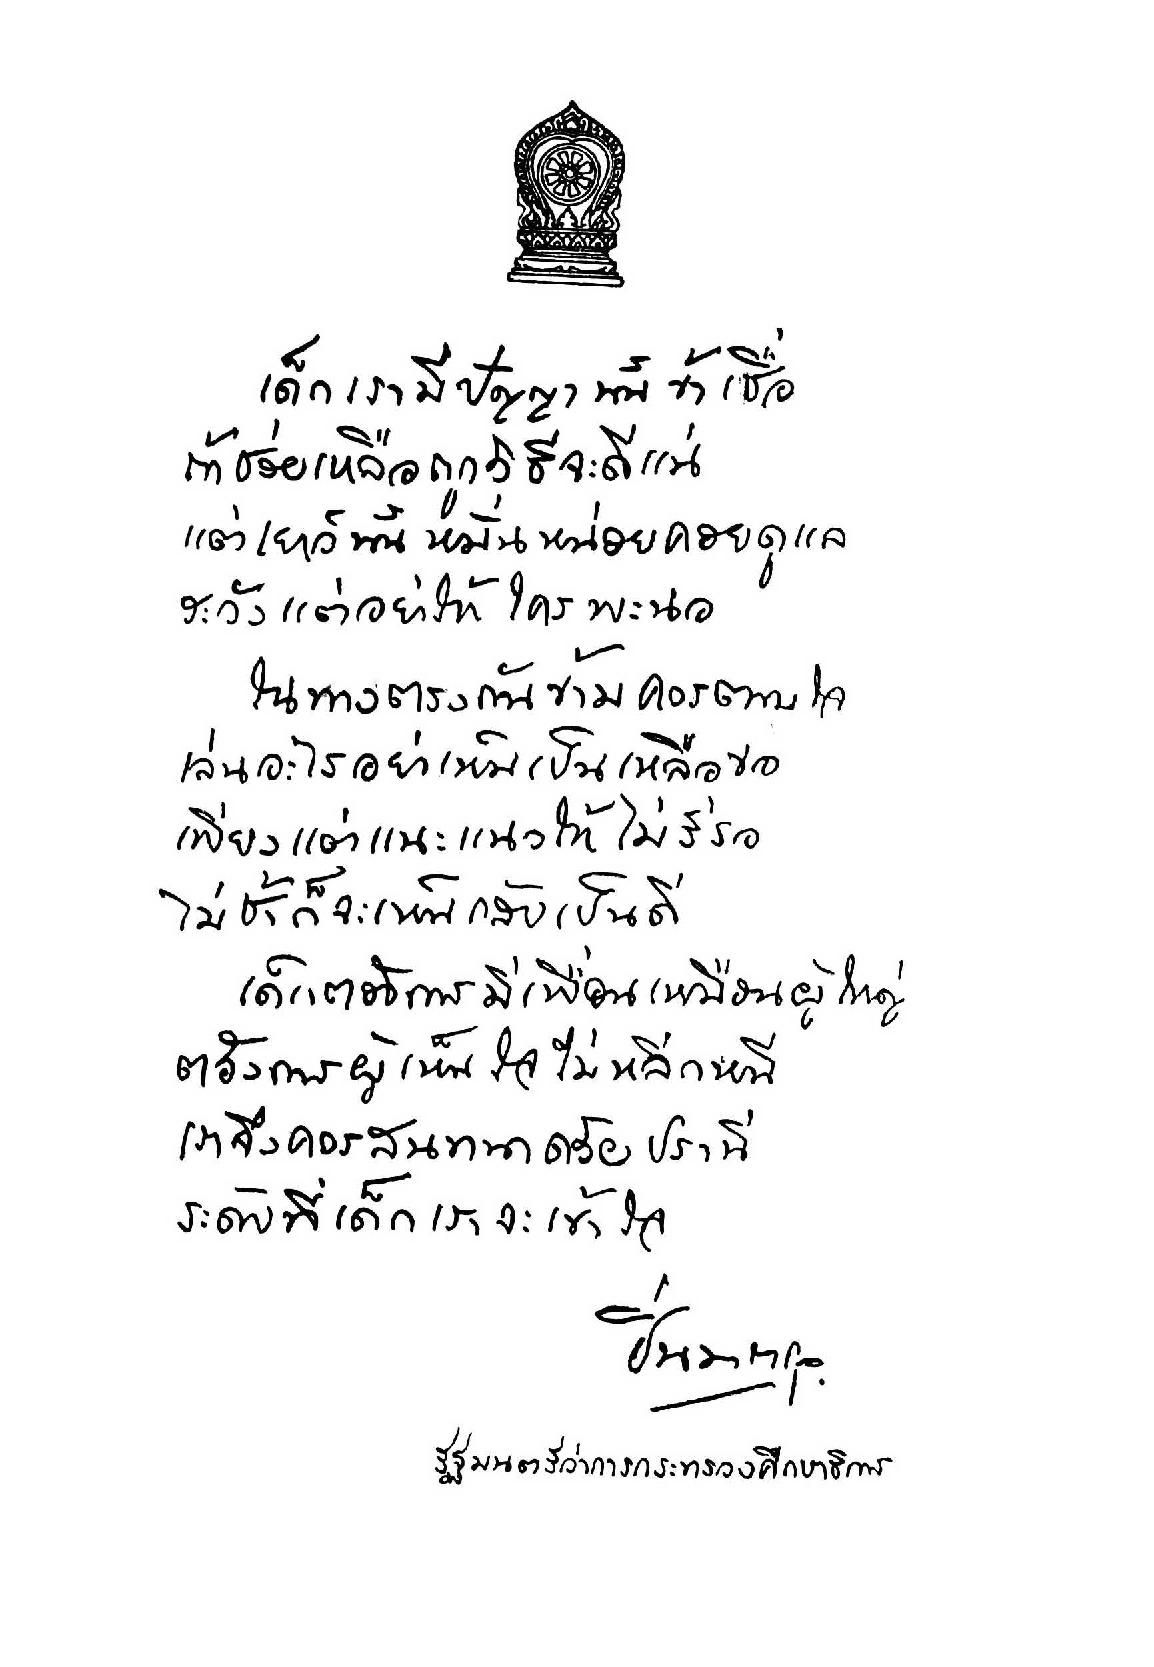 เด็กเรามีปัญญานี้ข้าเชื่อ
ถ้าช่วยเหลือถูกวิธีจะดีแน่
แต่เยาว์นี้หมั่นหน่อยคอยดูแล
ระวังแต่อย่าให้ใครพะนอ
ในทางตรงกันข้ามควรตามใจ
เล่นอะไรอย่าเห็นเป็นเหลือขอ
เพียงแต่แนะแนวให้ไม่รีรอ
ไม่ช้าก็จะเห็นกลับเป็นดี
เด็กต้องการมีเพื่อนเหมือนผู้ใหญ่
ต้องการผู้เห็นใจไม่หลีกหนี
เราจึงควรสนทนาด้วยปรานี
ระดับที่เด็กเราจะเข้าใจ
ปิ่น มาลากุล
รัฐมนตรีว่าการกระทรวงศึกษาธิการ